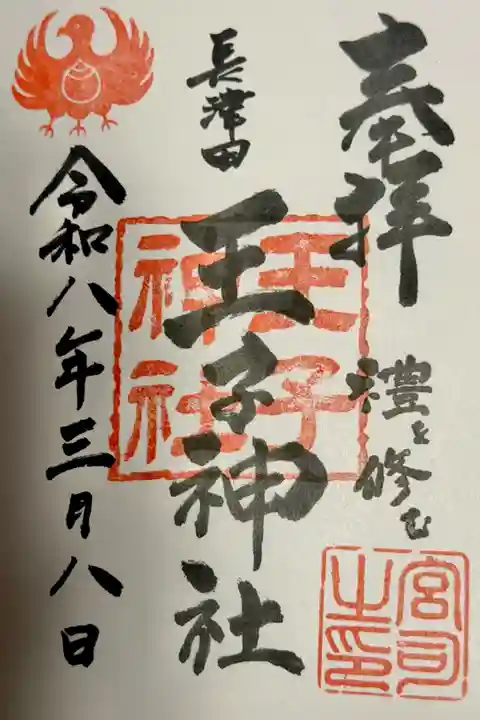 奉拝
澧を修む
宮司
之印
長津田
王子神社
王子
神社
令和八年三月八日